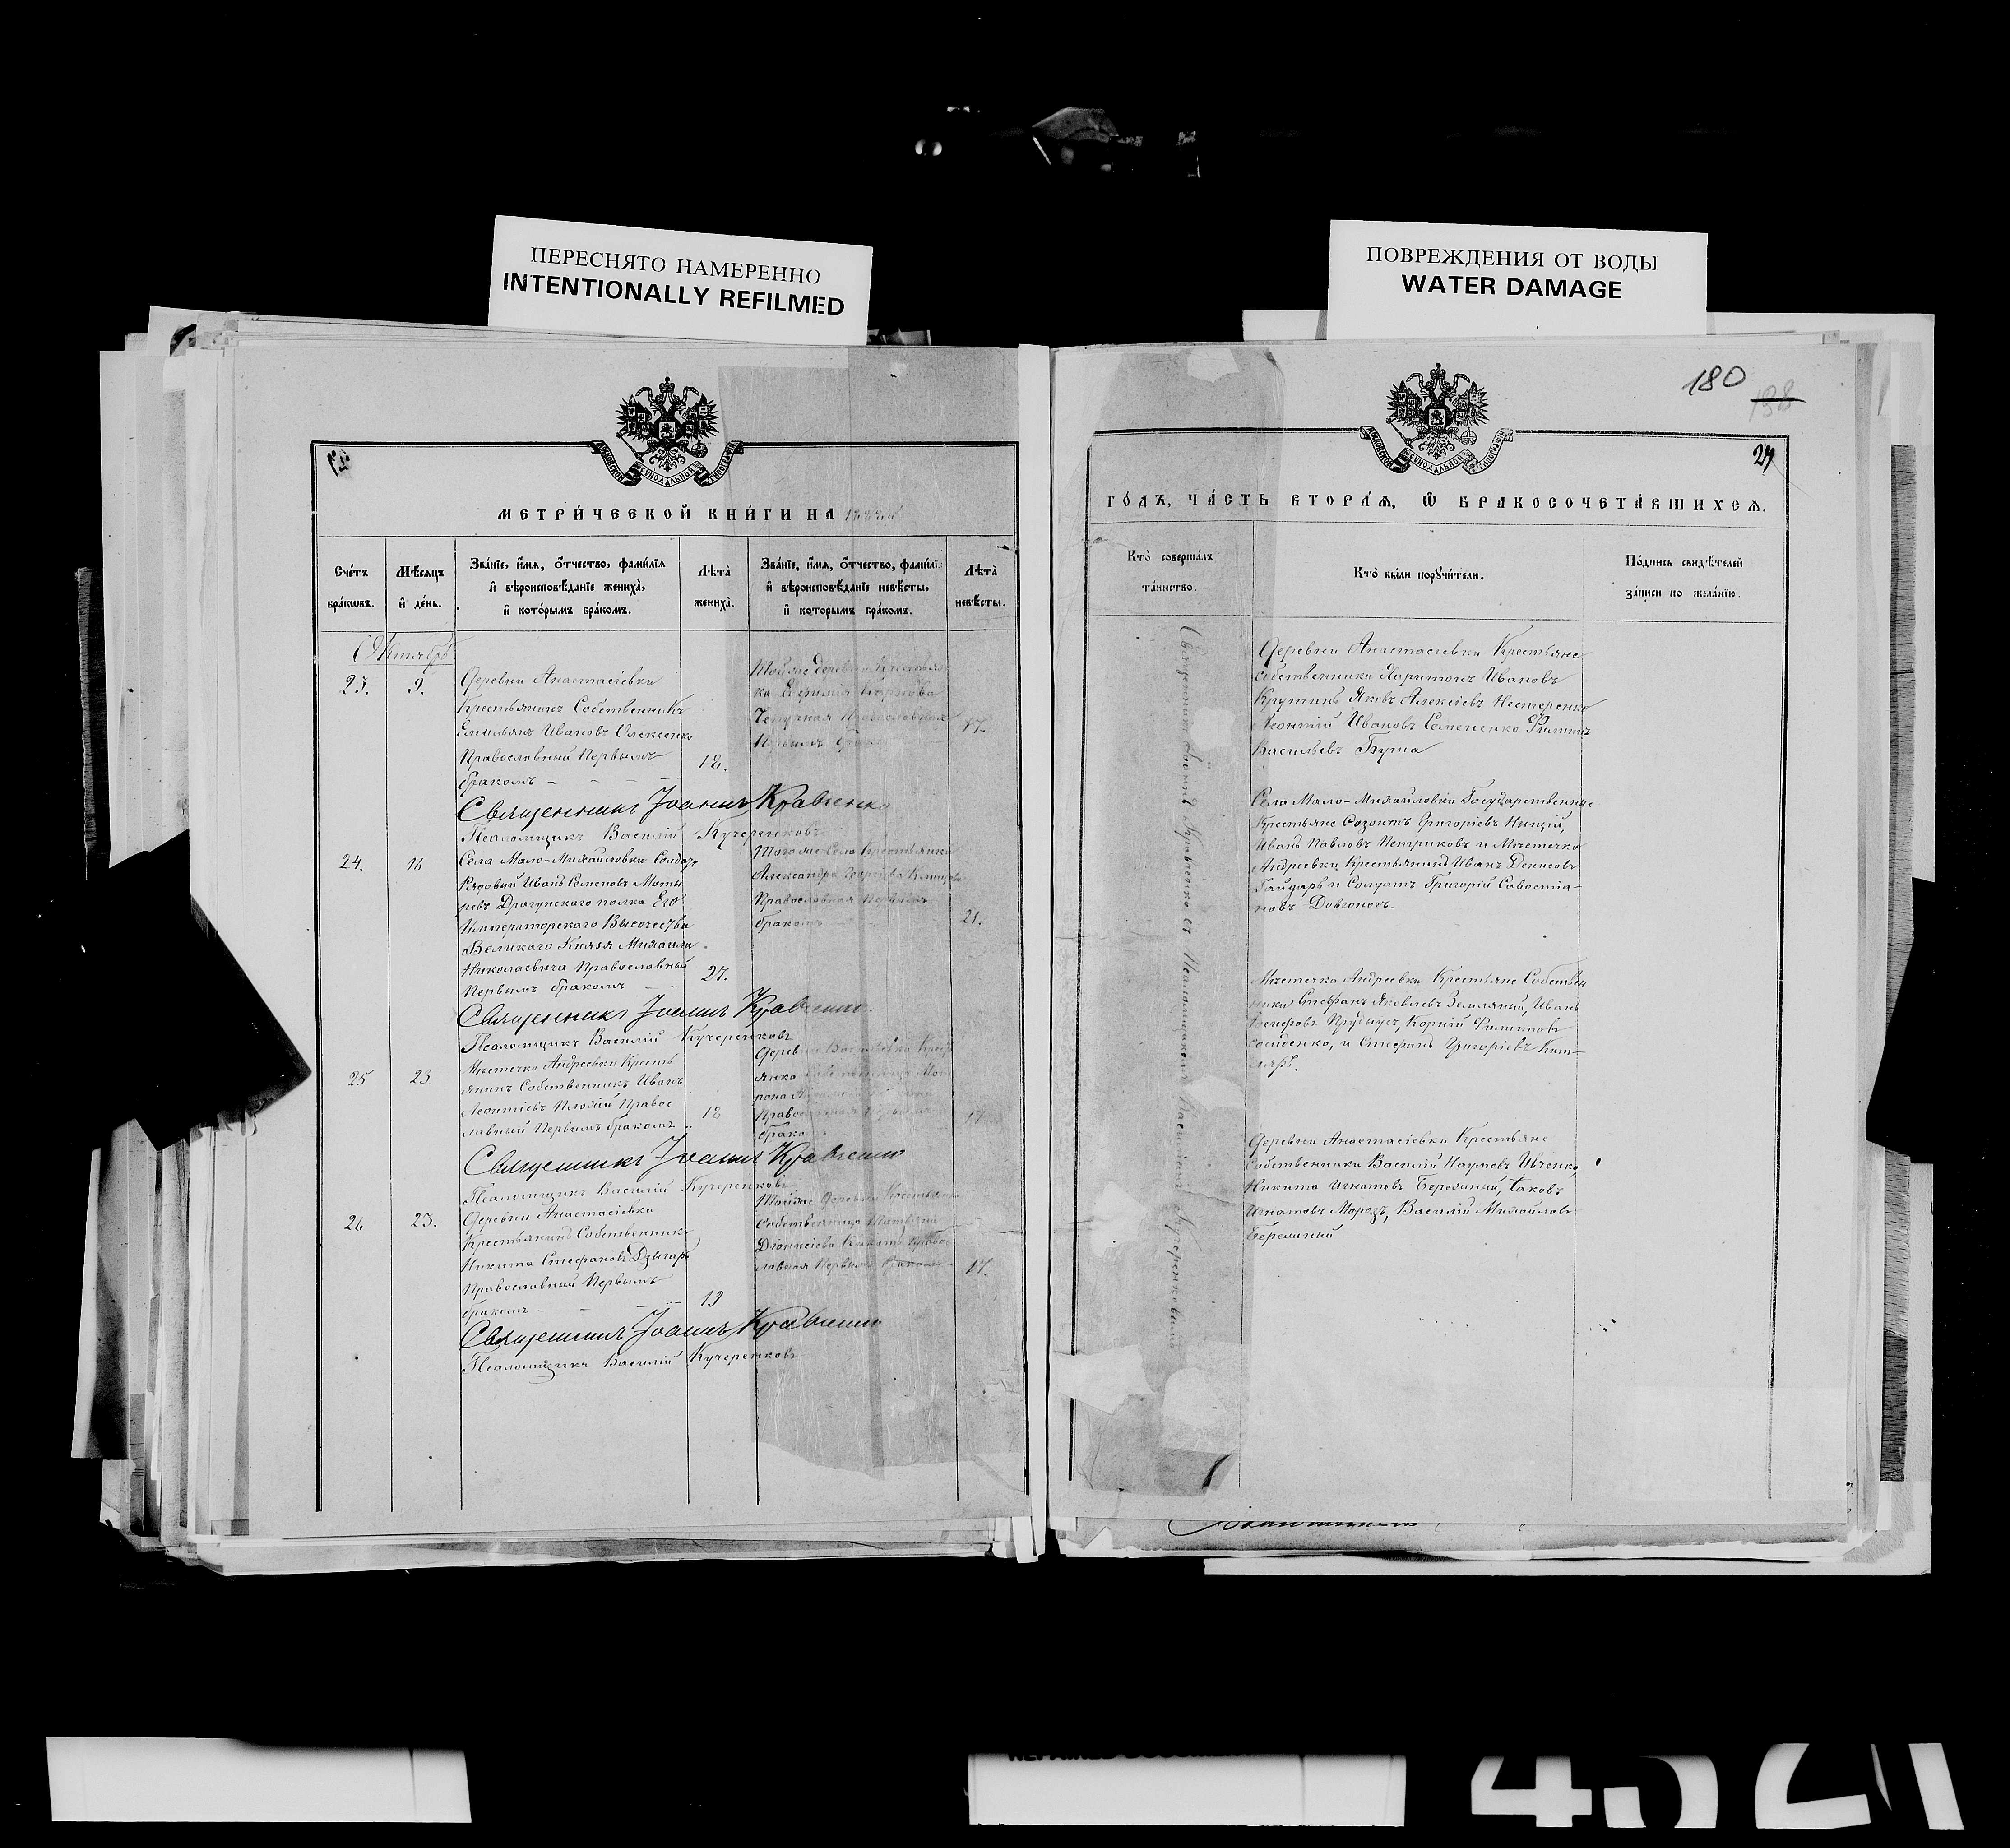 ПЕРЕСНЯТО НАМЕРЕННО
INTENTIONALLY REFILMED
ПОВРЕЖДЕНИЯ ОТ ВОДЫ
WATER DAMAGE
180
198
27
МЕТРИ́ЧЕСКОЙ КНИ́ГИ НА
Сче́тъ бра́кѡвъ.
Мѣ́сѧцъ и҆ де́нь.
Зва́нїе, и҆́мѧ, ѻ҆́тчество, фами́лїѧ
и҆ вѣроисповѣ́данїе жениха̀,
и҆ кото́рымъ бра́комъ.
Лѣта̀ жениха̀.
Зва́нїе, и҆́мѧ, ѻ҆́тчество, фами́лї
и҆ вѣроисповѣ́данїе невѣ́сты,
и҆ которымъ бра́комъ.
Лѣта̀ невѣ́сты.
Октябрь
23.
9.
Деревни Анастасіевки
Крестьянинъ Собственникъ
Емильянъ Ивановъ Олексенко
Православный Первымъ
бракомъ
18.
Тойже деревни Крестьян
ка Евфимія Карпова
Православная
Первымъ брак
17.
Священникъ Іоаннъ Кравченко
Псаломщикъ Василій Кучеренковъ
24.
16
Села Мало-Михайловки Солдатъ
Рядовый Иванъ Семеновъ Моты
ревъ Драгунскаго полка Его
Императорскаго Высочества
Великаго Князя Михаила
Николаевича Православный
Первымъ бракомъ
27.
Тогоже Села Крестьянка
Александра
Православная Первымъ
бракомъ
21.
Священникъ Іоаннъ Кравченко
Псаломщикъ Василій Кучеренковъ
25
23
Мѣстечка Андреевки Кресть
янинъ Собственникъ Иванъ
Леонтіевъ Плохій Правос
лавный Первымъ бракомъ
18
Деревни
янка
Православная Первымъ
брако
17
Священникъ Іоаннъ Кравченко
Псаломщикъ Василій Кучеренковъ
26
23.
Деревни Анастасіевки
Крестьянинъ Собственникъ
Никита Стефановъ Дзыгарь
Православный Первымъ
бракомъ
19
Тойже Деревни Крестьянка
Собственница
Діонисіева Правос
лавная Первымъ бракомъ
17.
Священникъ Іоаннъ Кравченко
Псаломщикъ Василій Кучеренковъ
ГО́ДЪ, ЧА́СТЬ ВТОРА́Ѧ, Ѡ҆ БРАКОСОЧЕТА́ВШИХСѦ.
Кто̀ соверша́лъ
та́инство.
Кто̀ бы́ли порꙋчи́тели.
По́дпись свидѣ́телей
за́писи по жела́нїю.
Священникъ Іоаннъ Кравченко съ Псаломщикомъ Василіемъ Кучеренковымъ
Деревни Анастасіевки Крестьяне
собственники Харитонъ Ивановъ
Крутинь Яковъ Алексіевъ Нестеренко
Леонтій Ивановъ Семененко Филиппъ
Васильевъ Буша
Села Мало-Михайловки Государственные
Крестьяне Созонтъ Григоріевъ Нищій,
Иванъ Павловъ Петриковъ и Мѣстечка
Андреевки Крестьянинъ Иванъ Денисовъ
Гайдарь и Солдатъ Григорій Савостіа-
новъ Довгополъ.
Мѣстечка Андреевки Крестьяне Собствен
ники Стефанъ Яковлевъ Земляный, Иванъ
Корній Филиповъ
и Стефанъ Григоріевъ Кот-
ляръ.
Деревни Анастасіевки Крестьяне
Собственники Василій Наумовъ Ивченко,
Никита Игнатовъ Бережный, Яковъ
Игнатовъ Морозъ, Василій Михайловъ
Бережный